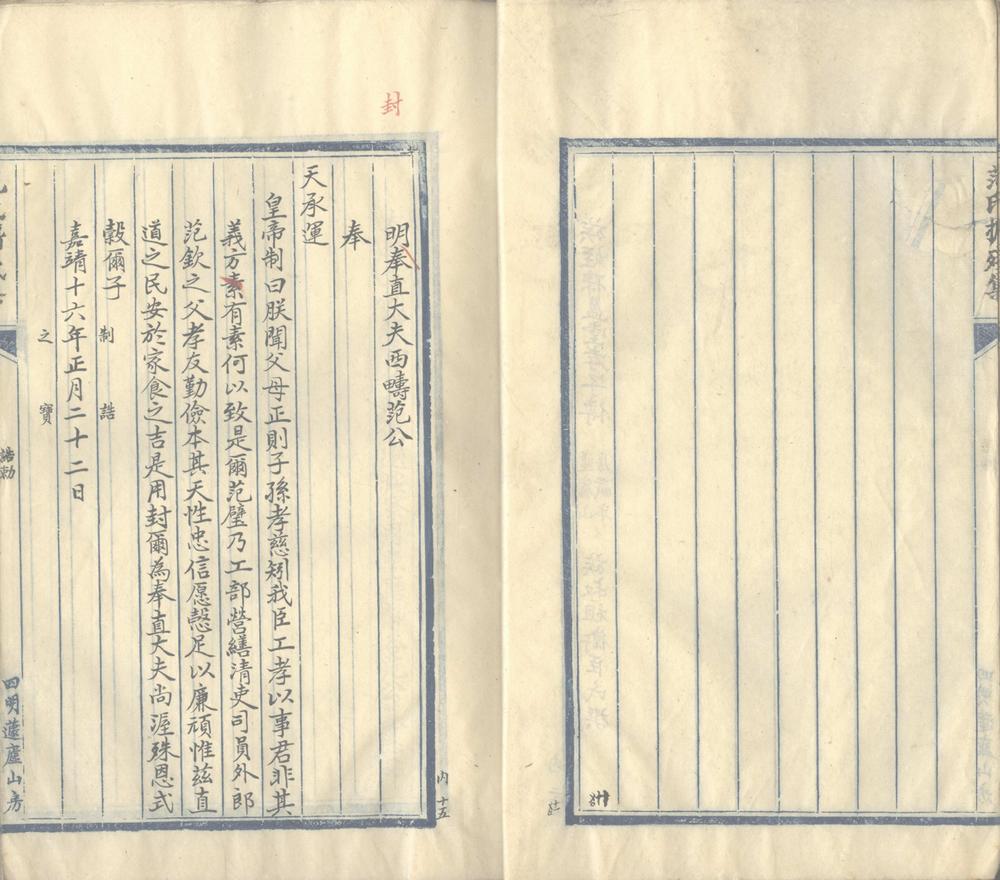 封
明奉直大夫西疇范公
奉
天承運
皇帝制曰朕聞父母正則子孫孝慈矧我臣工孝以事君非其
義方素有素何以致是爾范璧乃工部營繕清吏司員外郎
范欽之父孝友勤儉本其天性忠信愿慤足以廉頑惟茲直
道之民安於家食之吉是用封爾為奉直大夫尚渥殊恩式
穀爾子
制誥
嘉靖十六年正月二十二日
之寶
誥勅
四明蘧廬山房
內十五